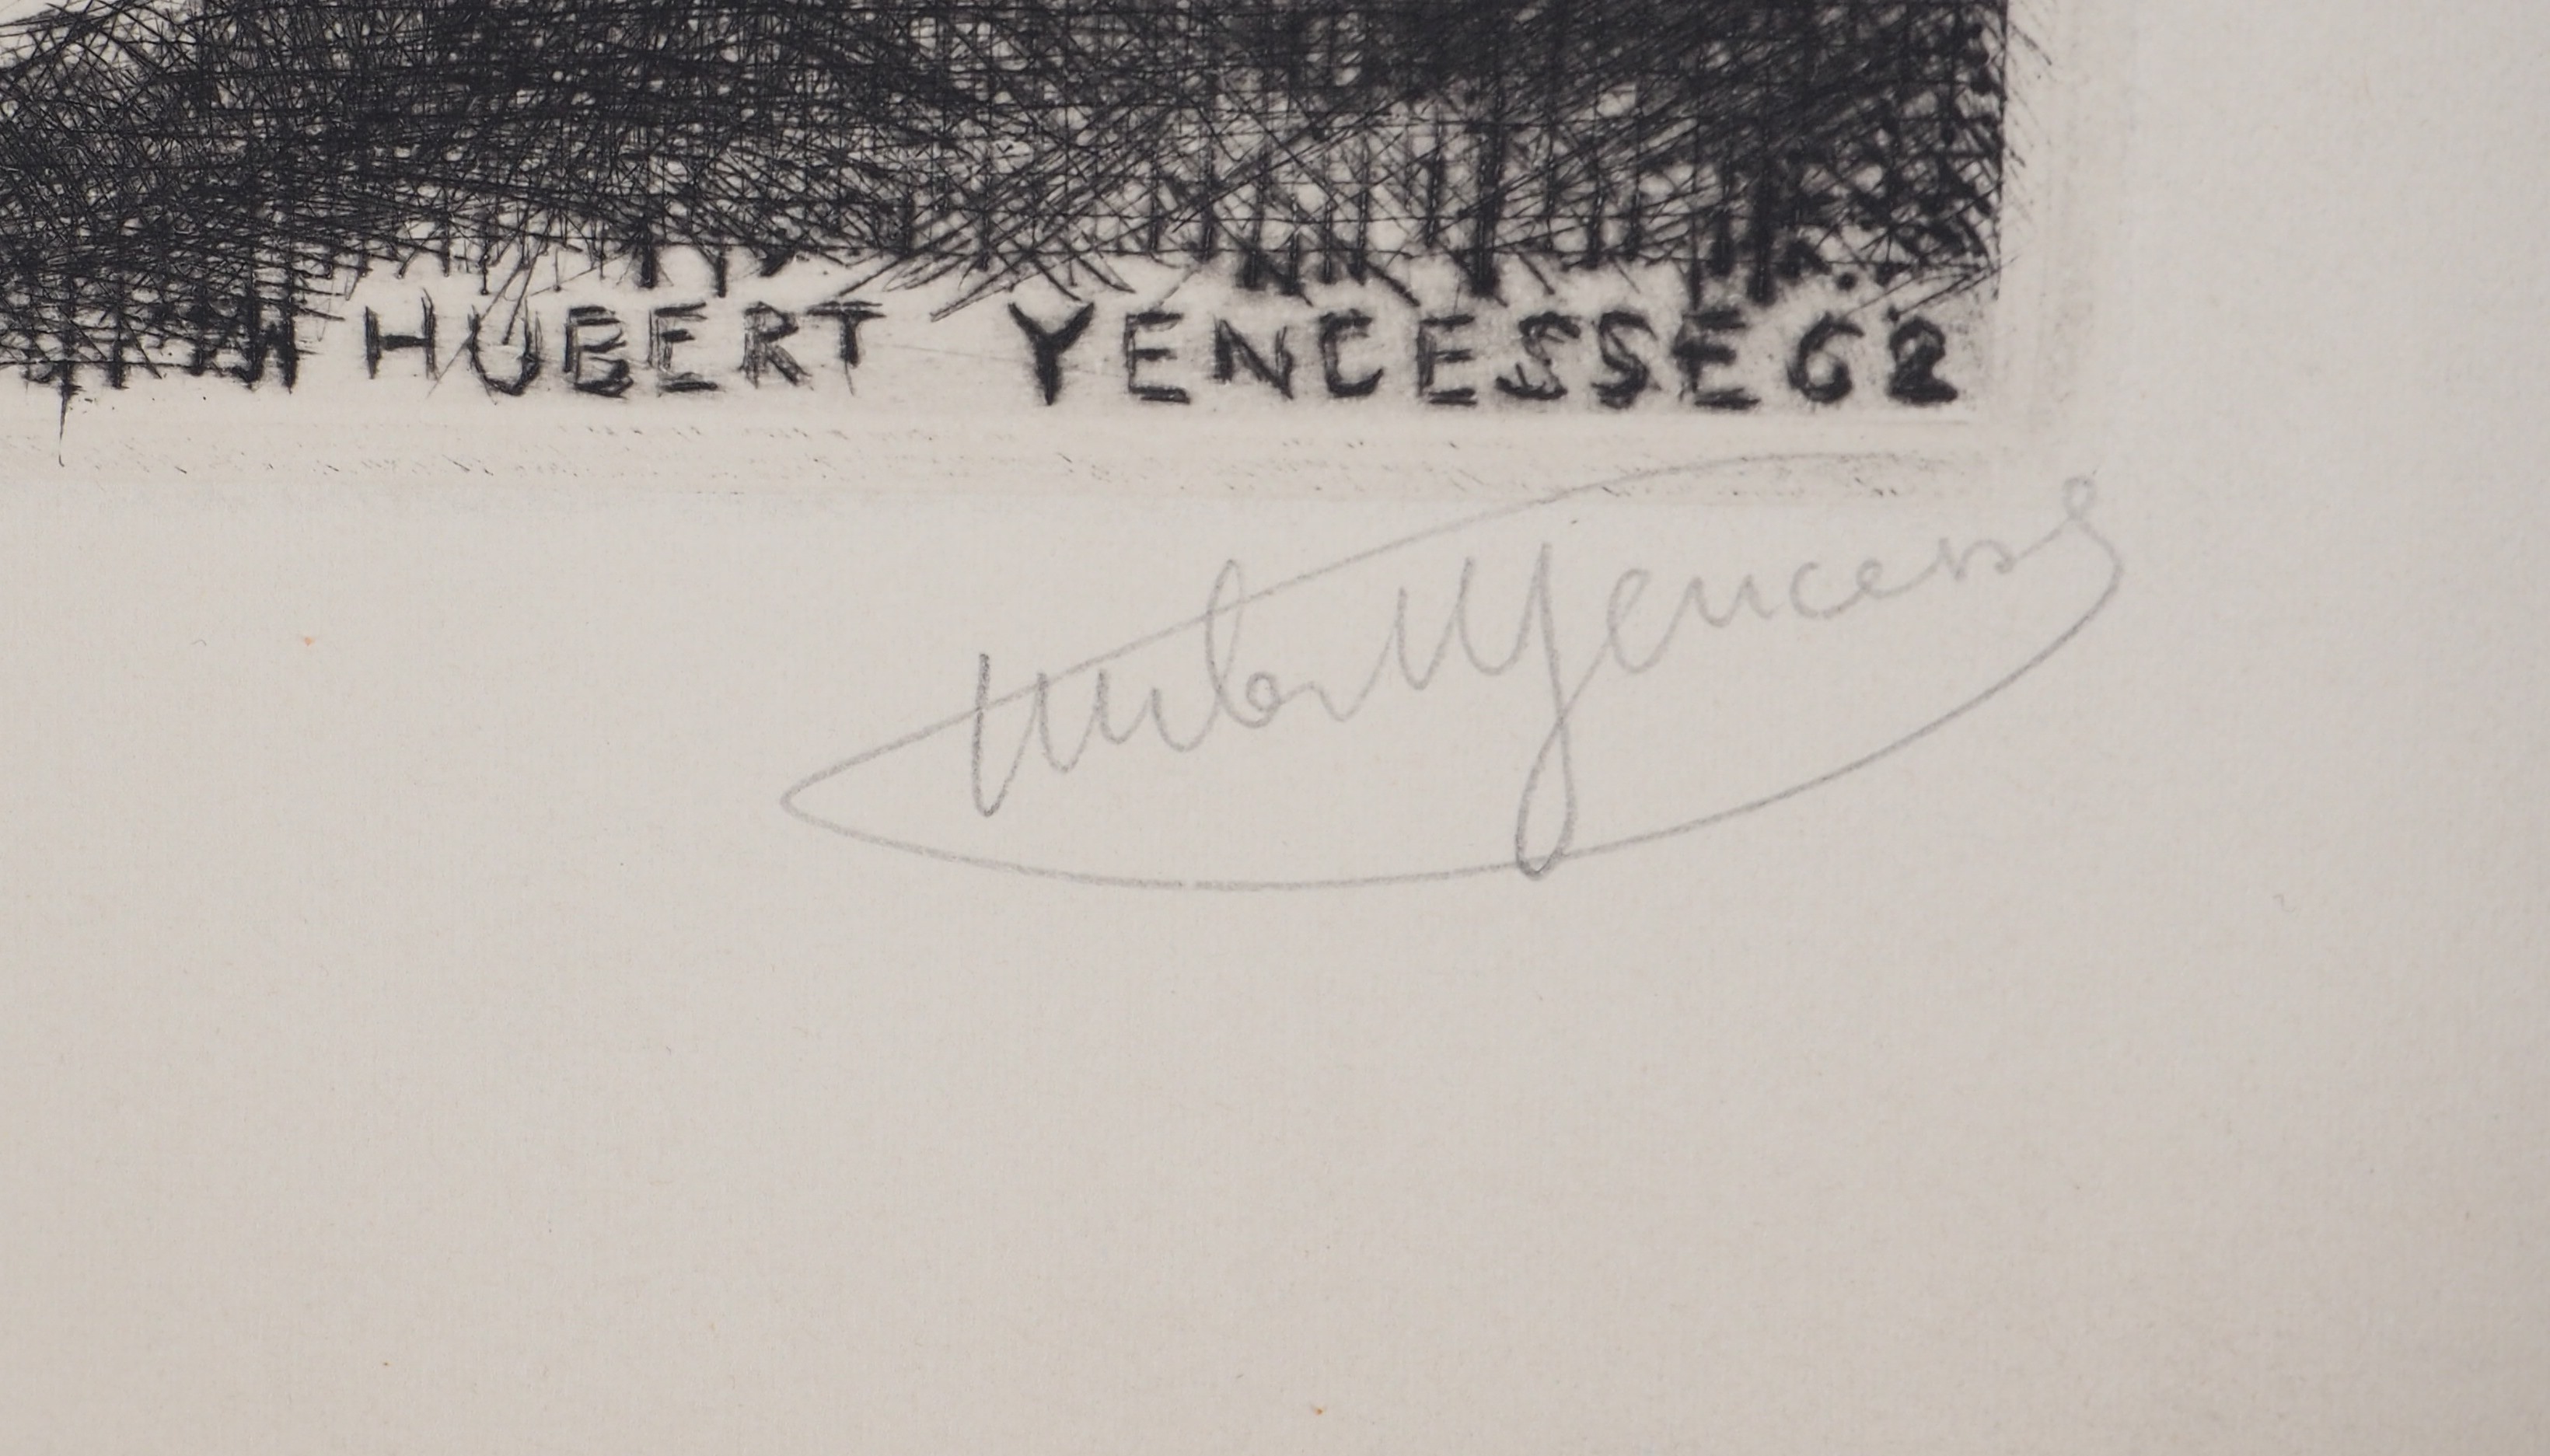 HUBERT YENCESSE 62
Hubert Yencesse